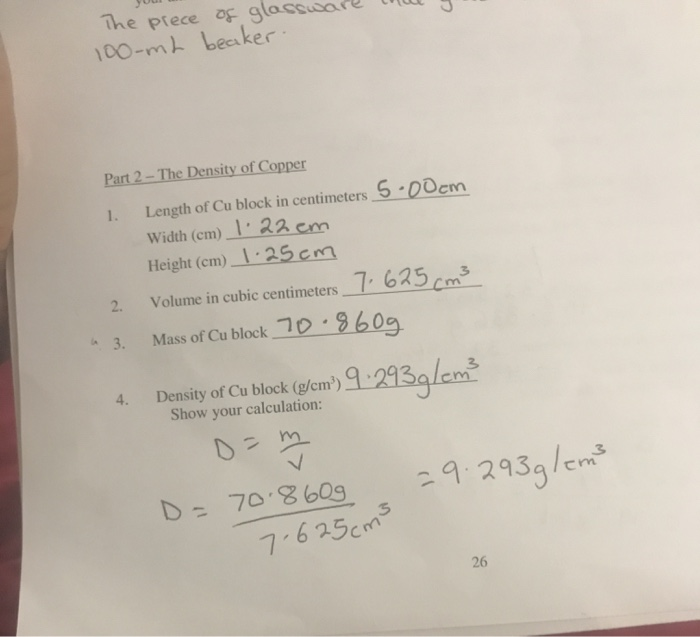 The piece of glassware
100-mL beaker.
Part 2 – The Density of Copper
1. Length of Cu block in centimeters 5.00cm
Width (cm) 1.22cm
Height (cm) 1.25cm
2. Volume in cubic centimeters 7.625cm³
3. Mass of Cu block 70.860g
4. Density of Cu block (g/cm³) 9.293g/cm³
Show your calculation:
D = m/V
D = 70.860g/7.625cm³ = 9.293g/cm³
26